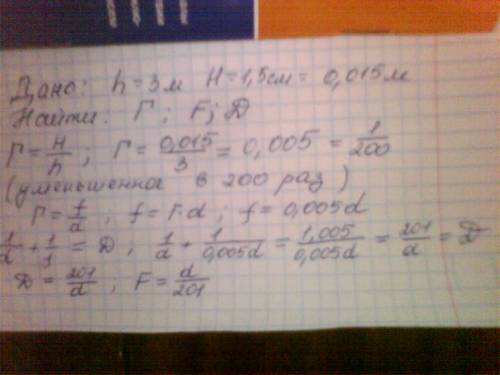 Дано: h = 3м H = 1,5см = 0,015м
Найти: Г; F; D
Г = H/h; Г = 0,015/3 = 0,005 = 1/200
(уменьшенное в 200 раз)
Г = f/d; f = Г·d; f = 0,005d
1/d + 1/f = D; 1/d + 1/0,005d = 1,005/0,005d = 201/d = D
D = 201/d; F = d/201